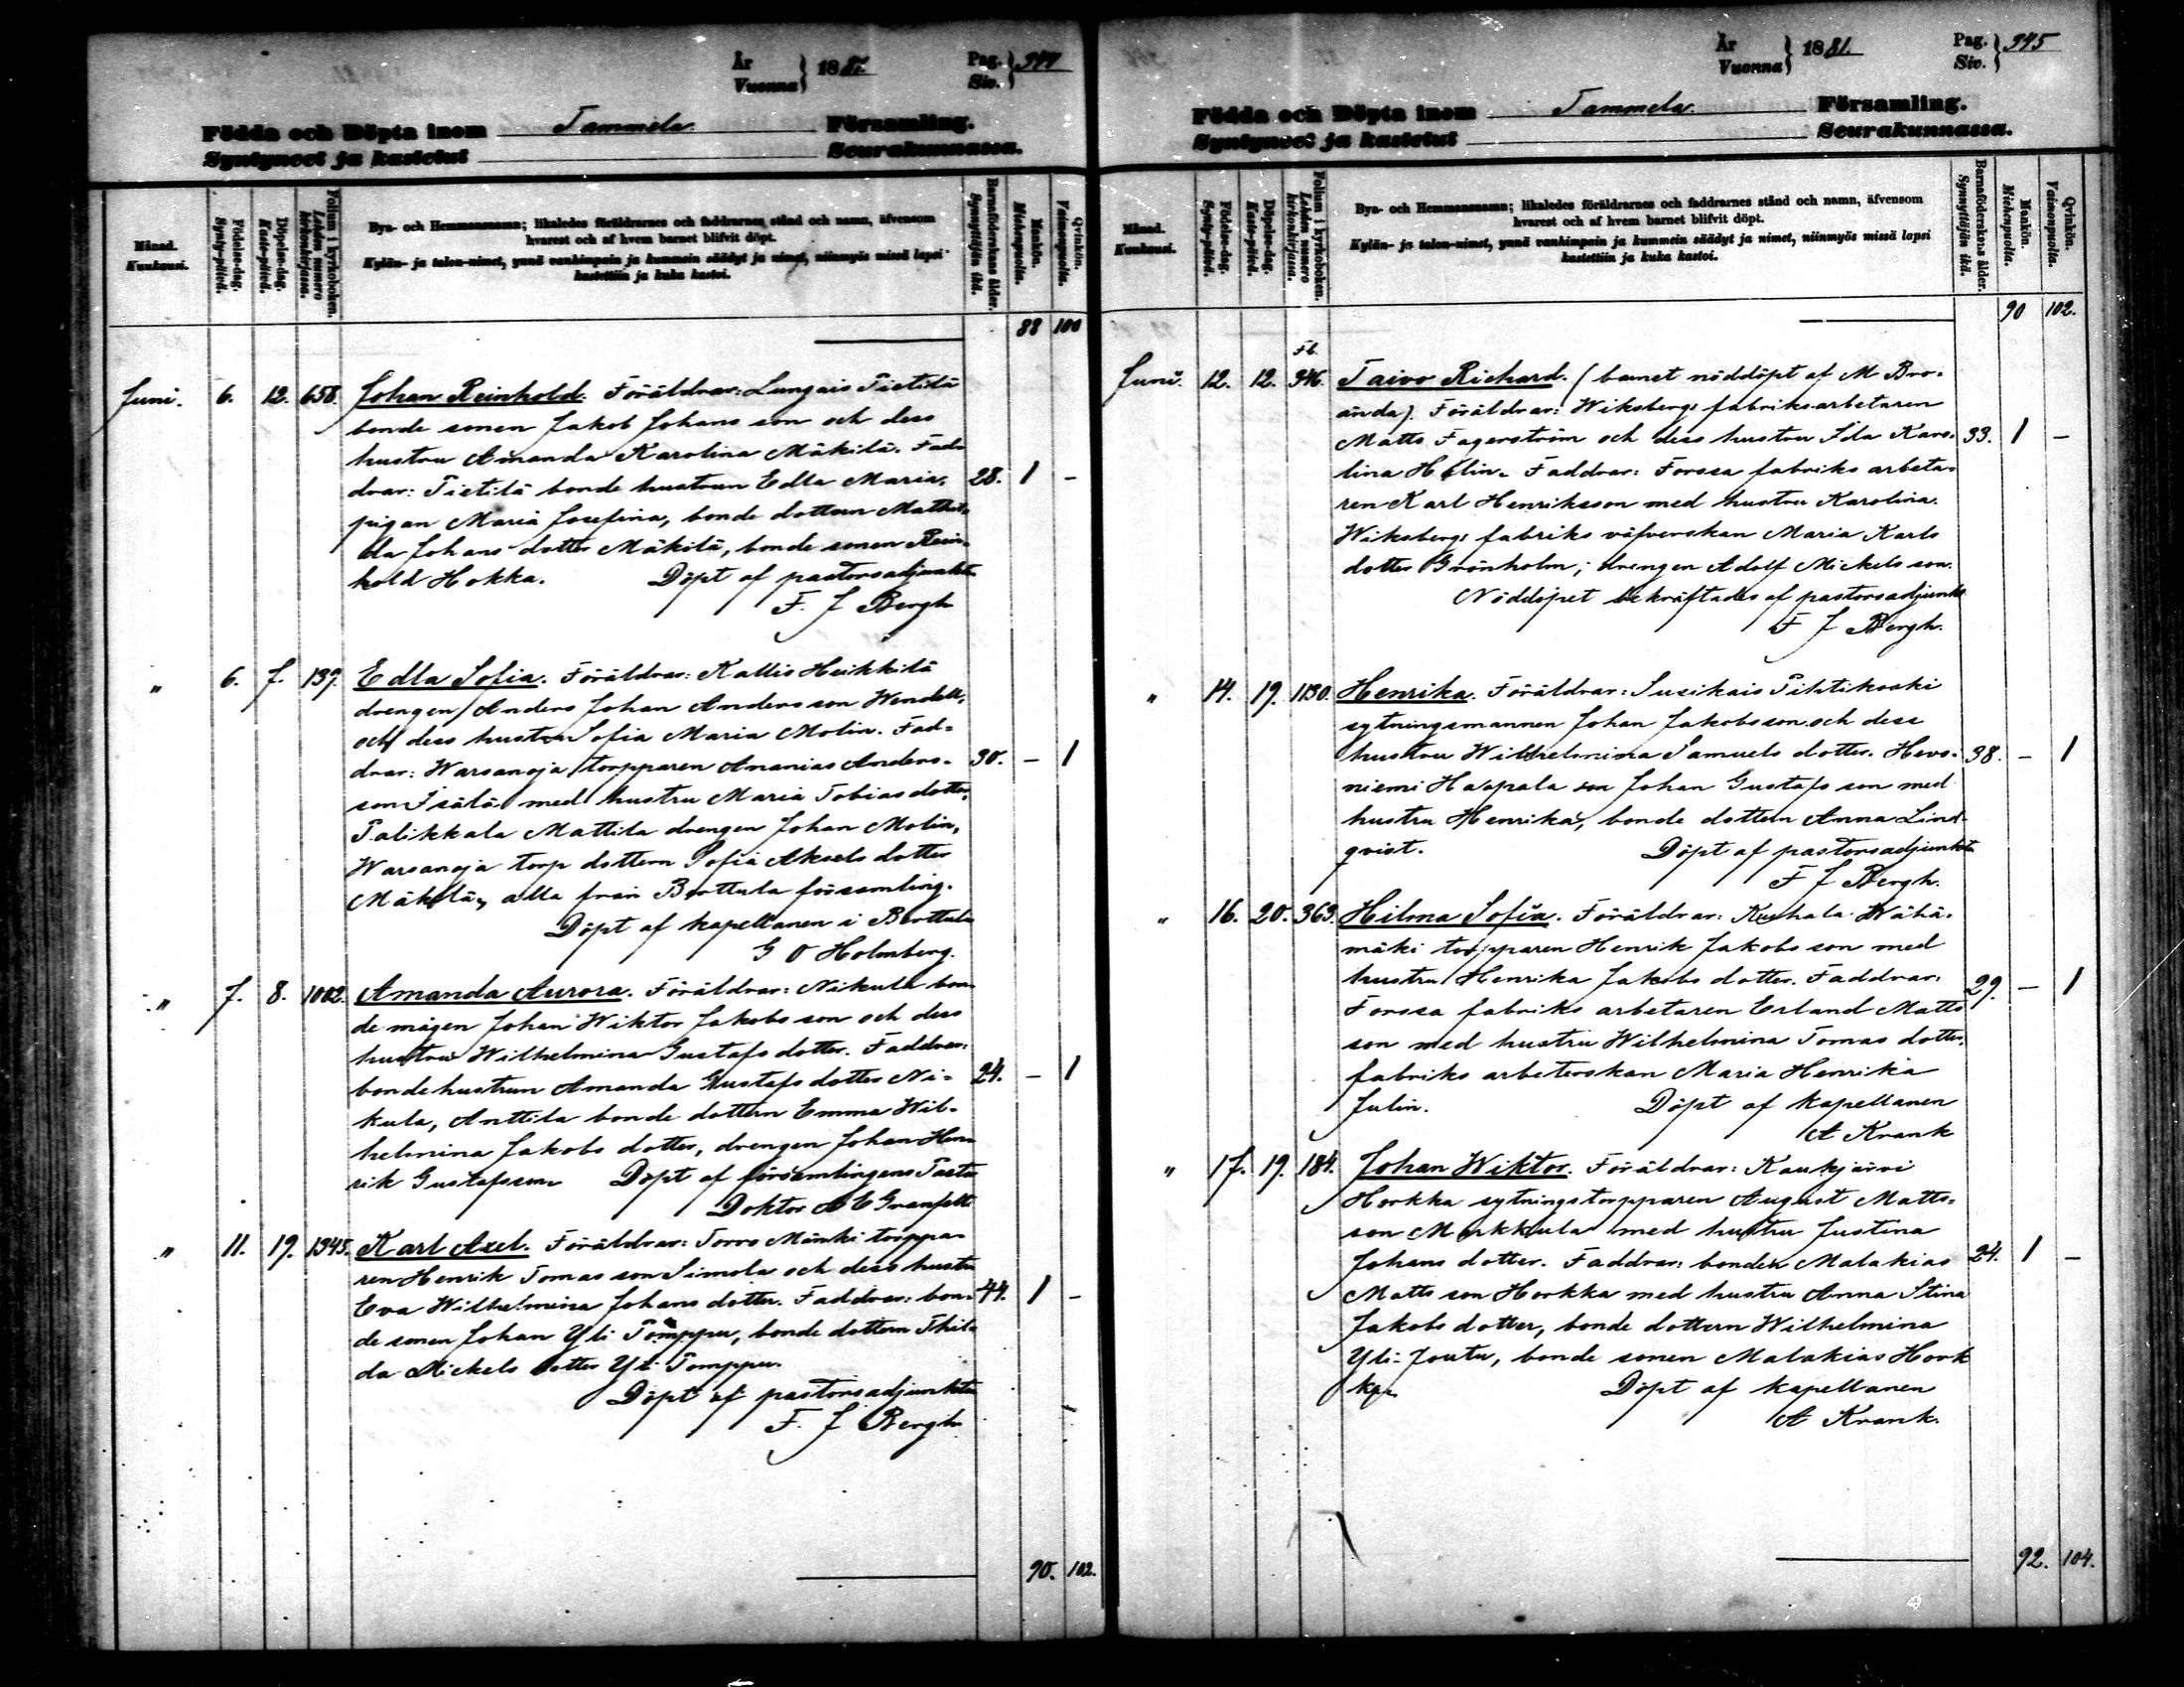 År
Vuonna } 1881. Pag.
Siv. } 344
Födda och Döpta inom Tammela Församling.
Syntyneet ja kastetut Seurakunnassa.
Månad.
Kuukausi.
Födelse-dag.
Synty-päivä.
Döpelse-dag.
Kaste-päivä.
Folium i kyrkoboken.
Lehden numero kirkonkirjassa.
Bya- och Hemmansnamn; likaledes föräldrarnes och faddrarnes stånd och namn, äfvensom
hvarest och af hvem barnet blifvit döpt.
Kylän- ja talon-nimet, ynnä vanhimpain ja kummein säädyt ja nimet, niinmyös missä lapsi
kastettiin ja kuka kastoi.
Barnaföderskans ålder.
Synnyttäjän ikä.
Mankön.
Miehenpuolta.
Qvinkön.
Vaimonpuolta.
88 100
Juni. 6. 12. 658. Johan Reinhold. Föräldrar: Lungais Pietilä
bonde sonen Jakob Johans son och dess
hustru Amanda Karolina Mäkilä. Fad-
drar: Pietilä bonde hustrun Edla Maria, 28. 1 -
pigan Maria Josefina, bonde dottern Mathil-
da Johans dotter Mäkilä, bonde sonen Rein-
hold Hokka. Döpt af pastorsadjunkten
F. J Bergh
" 6. 7. 139. Edla Sofia. Föräldrar: Kallis Heikkilä
drengen Anders Johan Anders son Wendell,
och dess hustru Sofia Maria Molin. Fad-
drar: Warsanoja torpparen Ananias Anders- 30. - 1
son Isälä med hustru Maria Tobias dotter,
Palikkala Mattila drengen Johan Molin,
Warsanoja torp dottern Sofia Aksels dotter
Mäkelä, alla från Berttula församling.
Döpt af kapellanen i Berttula
G O Holmberg.
" 7. 8. 1002. Amanda Aurora. Föräldrar: Nikula bon-
de mågen Johan Wiktor Jakobs son och dess
hustru Wilhelmina Gustafs dotter. Faddrar:
bondehustrun Amanda Gustafs dotter Ni- 24. - 1
kula, Anttila bonde dottern Emma Wil-
helmina Jakobs dotter, drengen Johan Hen-
rik Gustafsson Döpt af församlingens Pastor
Doktor A E Granfelt
" 11. 19. 1345. Karl Axel. Föräldrar: Torro Mänki torppa-
ren Henrik Tomas son Simola och dess hustru
Eva Wilhelmina Johans dotter. Faddrar: bon- 44. 1 -
de sonen Johan Yli Pomppu, bonde dottern Thil-
da Mickels dotter Yli Pomppu.
Döpt af pastorsadjunkten
F. J Bergh
90. 102.
År
Vuonna } 1881. Pag.
Siv. } 345
Födda och Döpta inom Tammela Församling.
Syntyneet ja kastetut Seurakunnassa.
Månad.
Kuukausi.
Födelse-dag.
Synty-päivä.
Döpelse-dag.
Kaste-päivä.
Folium i kyrkoboken.
Lehden numero kirkonkirjassa.
Bya- och Hemmansnamn; likaledes föräldrarnes och faddrarnes stånd och namn, äfvensom
hvarest och af hvem barnet blifvit döpt.
Kylän- ja talon-nimet, ynnä vanhimpain ja kummein säädyt ja nimet, niinmyös missä lapsi
kastettiin ja kuka kastoi.
Barnaföderskans ålder.
Synnyttäjän ikä.
Mankön.
Miehenpuolta.
Qvinkön.
Vaimonpuolta.
90 102.
Fb.
Juni. 12. 12. 346. Taivo Richard. (barnet nöddöpt af M Bro-
ända). Föräldrar: Wiksbergs fabriksarbetaren
Matts Fagerström och dess hustru Ida Karo- 33. 1 -
lina Helin. Faddrar: Forssa fabriks arbeta-
ren Karl Henriksson med hustru Karolina.
Wiksbergs fabriks väfverskan Maria Karls
dotter Grönholm; drengen Adolf Mickels son.
Nöddopet bekräftades af pastorsadjunkt
F J Bergh.
" 14. 19. 1130. Henrika. Föräldrar: Susikais Pihtikoski
sytningsmannen Johan Jakobsson och dess
hustru Wilhelmina Samuels dotter. Hevo- 38. - 1
niemi Haapala son Johan Gustafs son med
hustru Henrika, bonde dottern Anna Lind-
qvist. Döpt af pastorsadjunkten
F J Bergh.
" 16. 20. 363. Hilma Sofia. Föräldrar: Kuhala Wähä-
mäki torpparen Henrik Jakobs son med
hustru Henrika Jakobs dotter. Faddrar: 29. - 1
Forssa fabriks arbetaren Erland Matts
son med hustru Wilhelmina Tomas dotter,
fabriks arbeterskan Maria Henrika
Julin. Döpt af kapellanen
A Krank
" 17. 19. 184. Johan Wiktor. Föräldrar: Kaukjärvi
Horkka sytningstorpparen August Matts-
son Markkula med hustru Justina
Johans dotter. Faddrar: bonden Malakias 24. 1 -
Matts son Horkka med hustru Anna Stina
Jakobs dotter, bonde dottern Wilhelmina
Yli-Joutu, bonde sonen Malakias Hork
ka. Döpt af kapellanen
A Krank.
92. 104.